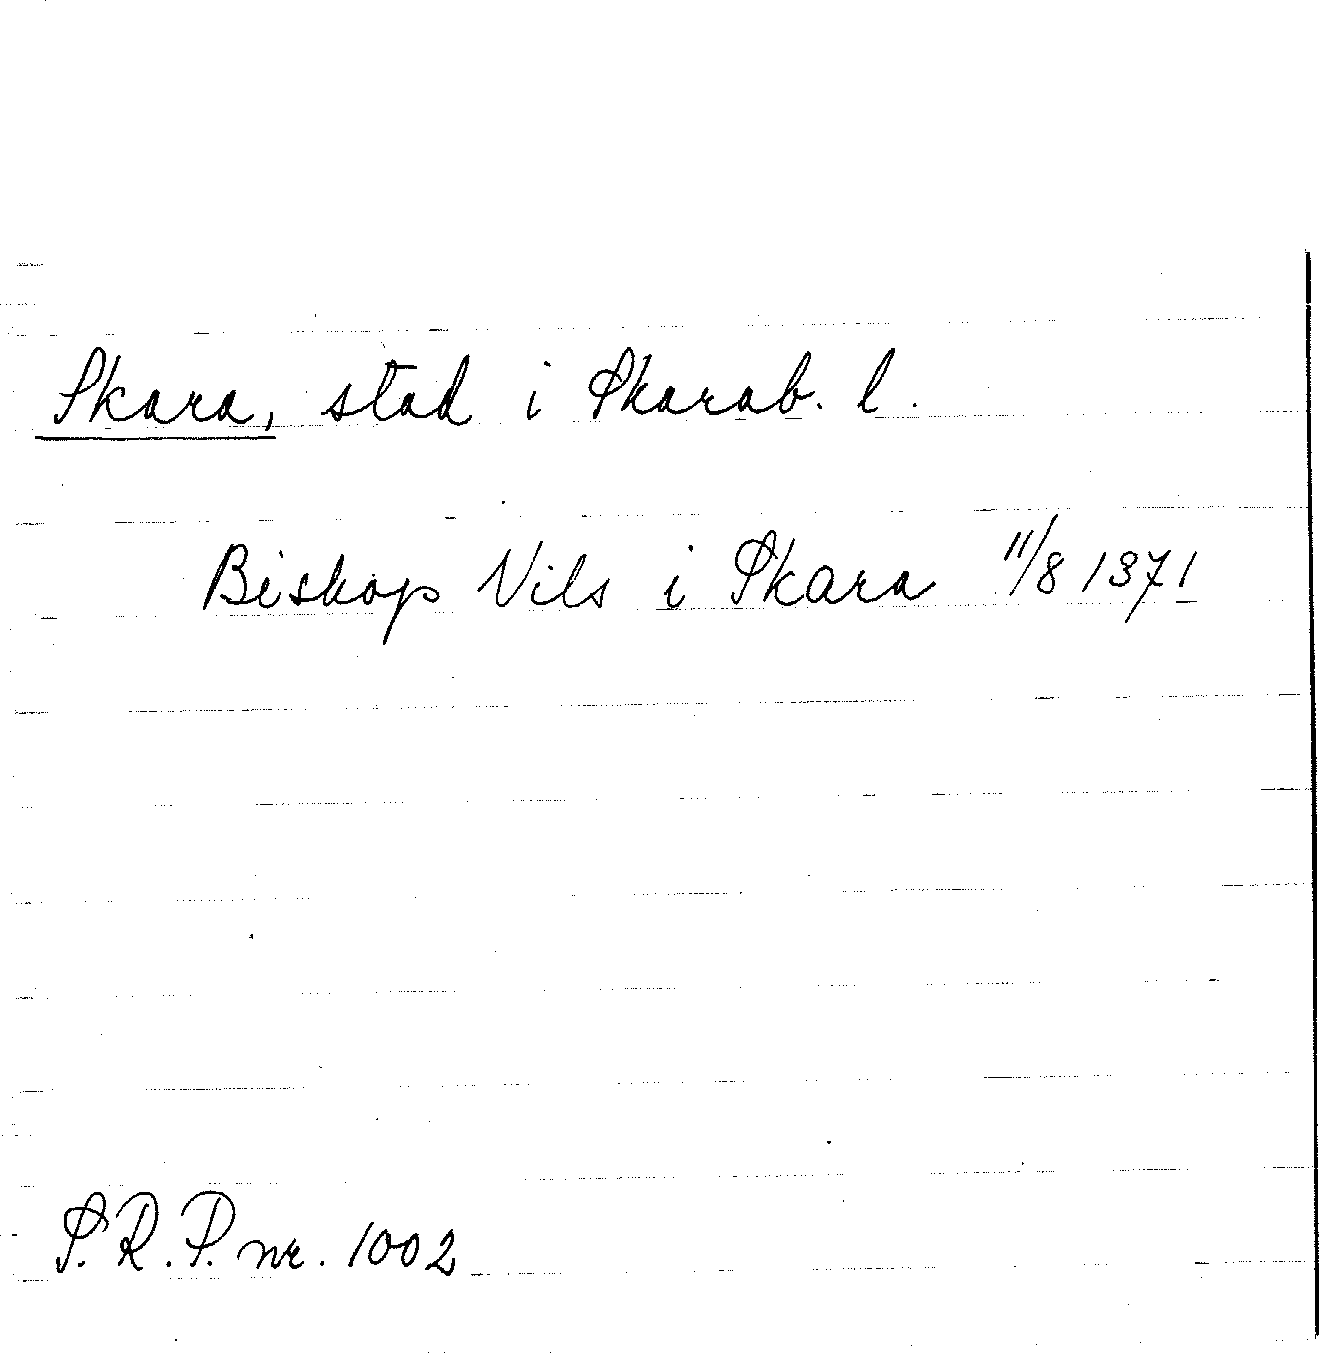 Skara, stad i Skarab. l.
Biskop Nils i Skara 11/8 1371
S.R.P. nr. 1002